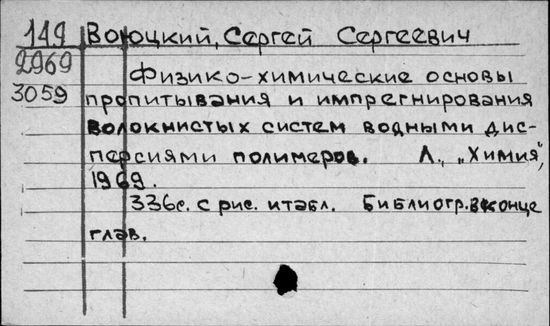 149 Воюцкий, Сергей Сергеевич
2969 Физико-химические основы
3059 пропитывания и импрегнирования
волокнистых систем водными дис-
персиями полимеров. Л., „Химия",
1969.
336с. с рис. и табл. Библиогр. в конце
глав.